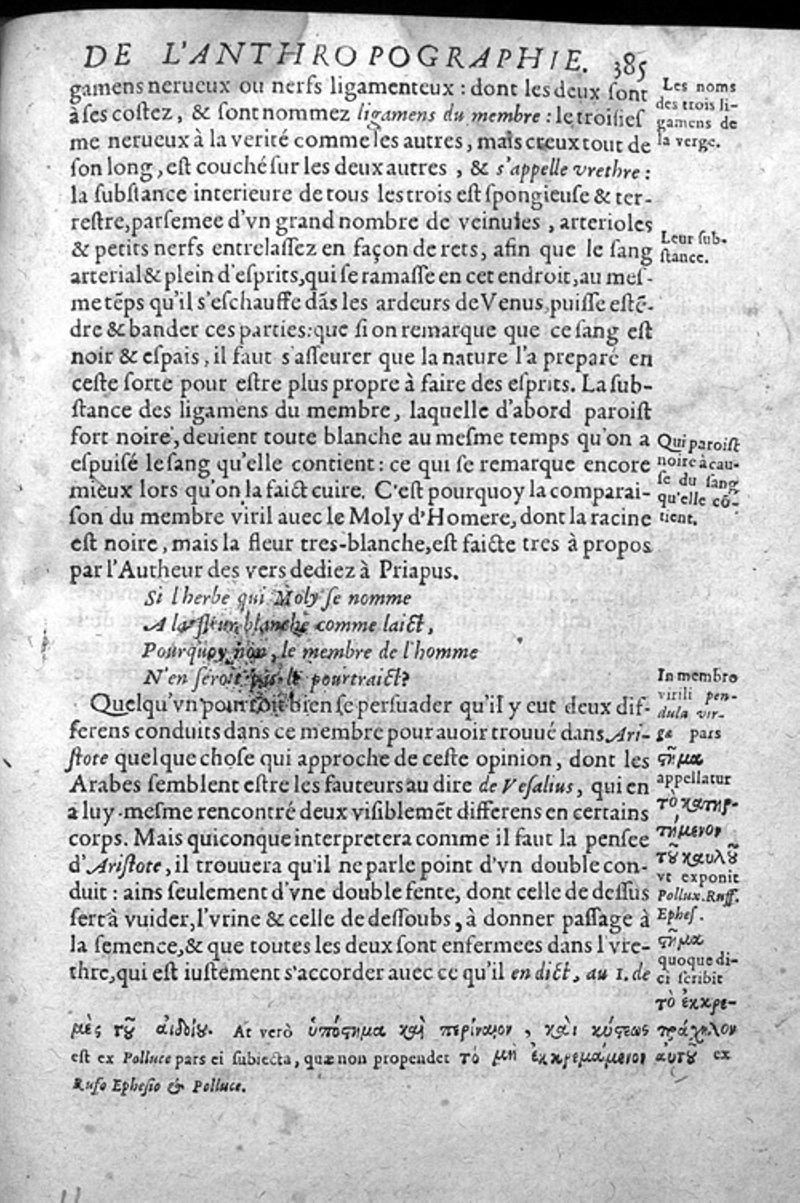 DE L'ANTHROPOGRAPHIE. 385
gamens nerueux ou nerfs ligamenteux : dont les deux ſont
à ſes coſtez, & ſont nommez ligamens du membre : le troiſieſ
me nerueux à la verité comme les autres, mais creux tout de
ſon long, eſt couché ſur les deux autres , & s'appelle vrethre :
la ſubſtance interieure de tous les trois eſt ſpongieuſe & ter-
reſtre, parſemee d'vn grand nombre de veinules , arterioles
& petits nerfs entrelaſſez en façon de rets, afin que le ſang
arterial & plein d'eſprits, qui ſe ramaſſe en cet endroit, au meſ-
me tẽps qu'il s'eſchauffe dãs les ardeurs de Venus, puiſſe eſtẽ-
dre & bander ces parties: que ſi on remarque que ce ſang eſt
noir & eſpais, il faut s'aſſeurer que la nature l'a preparé en
ceſte ſorte pour eſtre plus propre à faire des eſprits. La ſub-
ſtance des ligamens du membre, laquelle d'abord paroiſt
fort noire, deuient toute blanche au meſme temps qu'on a
eſpuiſé le ſang qu'elle contient : ce qui ſe remarque encore
mieux lors qu'on la faict cuire. C'eſt pourquoy la comparai-
ſon du membre viril auec le Moly d'Homere, dont la racine
eſt noire, mais la fleur tres-blanche, eſt faicte tres à propos
par l'Autheur des vers dediez à Priapus.
Si l'herbe qui Moly ſe nomme
A la fleur blanche comme laict,
Pourquoy non, le membre de l'homme
N'en ſeroit pas le pourtraict?
Quelqu'vn pourroit bien ſe perſuader qu'il y eut deux dif-
ferens conduits dans ce membre pour auoir trouué dans Ari-
ſtote quelque choſe qui approche de ceſte opinion, dont les
Arabes ſemblent eſtre les fauteurs au dire de Veſalius, qui en
a luy-meſme rencontré deux viſiblemẽt differens en certains
corps. Mais quiconque interpretera comme il faut la penſee
d'Ariſtote, il trouuera qu'il ne parle point d'vn double con-
duit : ains ſeulement d'vne double fente, dont celle de deſſus
ſert à vuider, l'vrine & celle de deſſoubs, à donner paſſage à
la ſemence, & que toutes les deux ſont enfermees dans l'vre-
thre, qui eſt iuſtement s'accorder auec ce qu'il en dict, au 1. de
Les noms
des trois li-
gamens de
la verge.
Leur ſub-
ſtance.
Qui paroiſt
noire à cau-
ſe du ſang
qu'elle cõ-
tient.
In membro
virili pen-
dula vir-
ga pars
ϛῆμα
appellatur
τὸ κατηρ-
τημένον
τοῦ καυλοῦ
vt exponit
Pollux. Ruff.
Epheſ.
ϛῆμα
quoque di-
ci ſcribit
τὸ ἐκκρε-
μὲς τοῦ αἰδοίου. At verò ὑπόϛημα καὶ περίναιον , καὶ κύϛεως τράχηλον
eſt ex Polluce pars ei ſubiecta, quæ non propendet τὸ μὴ ἐκκρεμάμενον αὐτοῦ ex
Rufo Epheſio & Polluce.